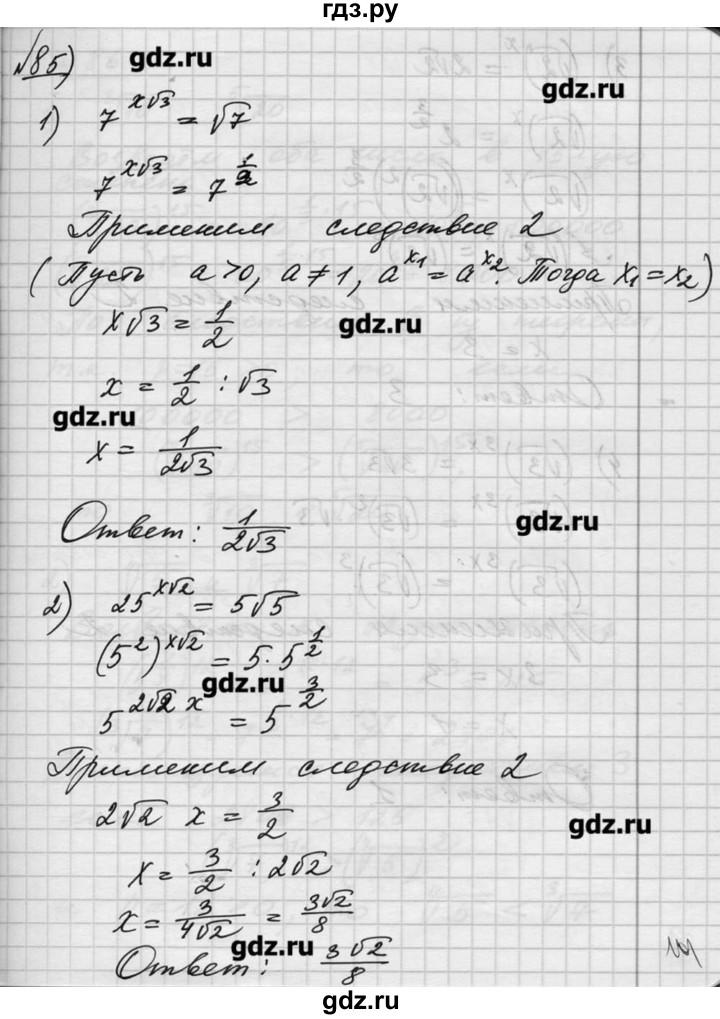 гдз.ру
№85)
gdz.ru
gdz.ru
1) 7^(x√3) = √7
7^(x√3) = 7^(1/2)
Применим следствие 2
(Пусть a>0, a≠1, a^(x₁) = a^(x₂). Тогда x₁=x₂)
x√3 = 1/2
gdz.ru
x = 1/2 : √3
gdz.ru
x = 1/(2√3)
Ответ: 1/(2√3)
gdz.ru
2) 25^(x√2) = 5√5
(5²)^(x√2) = 5·5^(1/2)
gdz.ru
5^(2√2 x) = 5^(3/2)
Применим следствие 2
2√2 x = 3/2
gdz.ru
x = 3/2 : 2√2
x = 3/(4√2) = 3√2/8
gdz.ru
Ответ: 3√2/8
gdz.ru